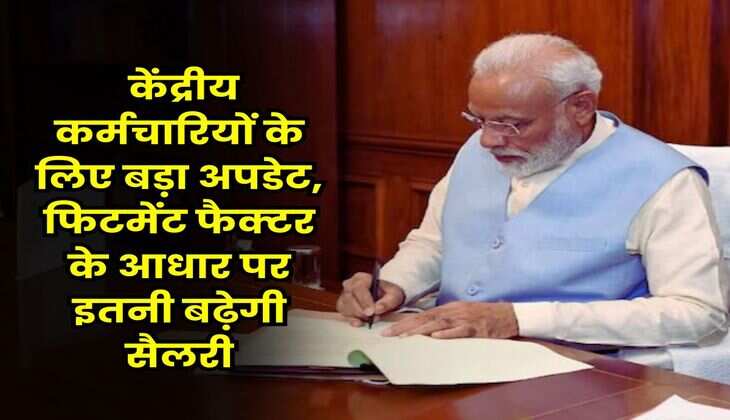 केंद्रीय
कर्मचारियों के
लिए बड़ा अपडेट,
फिटमेंट फैक्टर
के आधार पर
इतनी बढ़ेगी
सैलरी